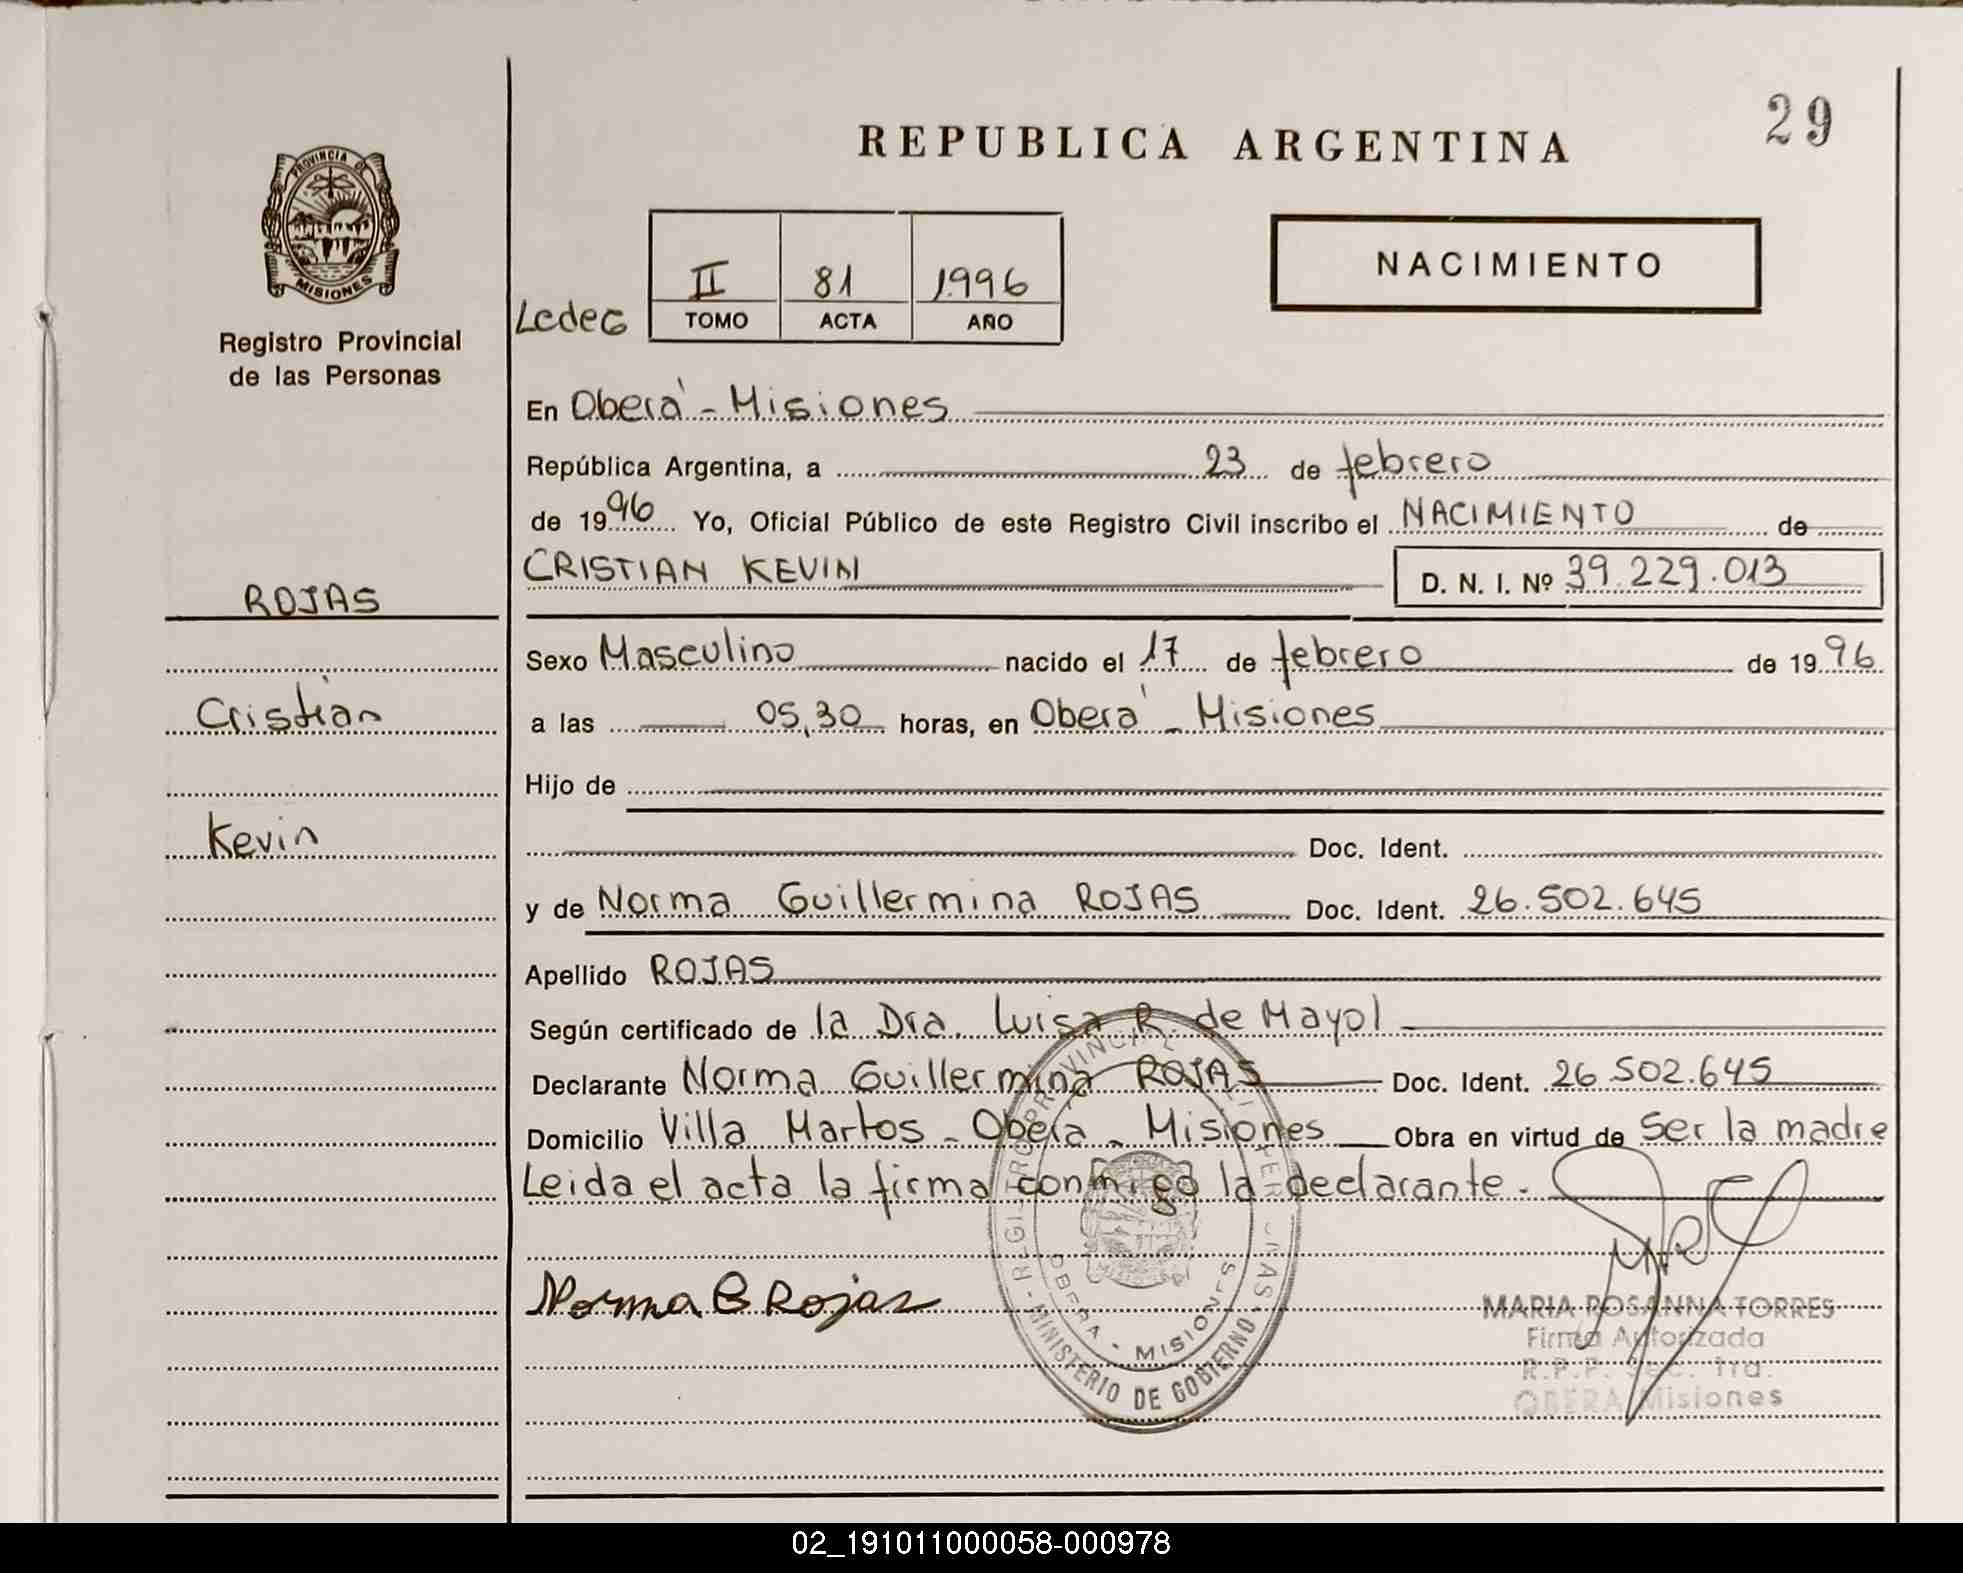 29
REPUBLICA ARGENTINA
PROVINCIA DE
MISIONES
Registro Provincial
de las Personas
II 81 1996
TOMO ACTA AÑO
NACIMIENTO
En Oberá - Misiones
República Argentina, a 23 de febrero
de 1996 Yo, Oficial Público de este Registro Civil inscribo el NACIMIENTO de
CRISTIAN KEVIN D. N. I. Nº 39.229.013
ROJAS
Sexo Masculino nacido el 17 de febrero de 1996
Cristian
a las 05,30 horas, en Oberá - Misiones
Hijo de
Kevin
Doc. Ident.
y de Norma Guillermina ROJAS Doc. Ident. 26.502.645
Apellido ROJAS
Según certificado de la Dra. Luisa R. de Mayol
Declarante Norma Guillermina ROJAS Doc. Ident. 26.502.645
Domicilio Villa Martos - Oberá - Misiones Obra en virtud de Ser la madre
Leida el acta la firma conmigo la declarante.
Norma G Rojas
OBERA - MISIONES
MINISTERIO DE GOBIERNO
MARIA ROSANNA TORRES
Firma Autorizada
R.P.P. Sec. 1ra.
OBERA Misiones
02_191011000058-000978